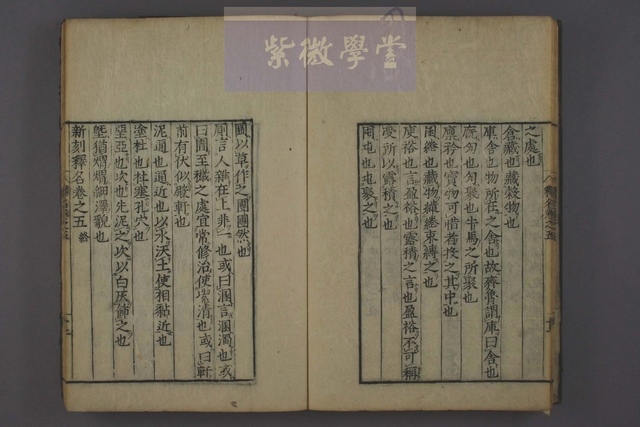 紫微學堂
之處也
倉藏也藏穀物也
庫舍也物所在之舍也故齊魯謂庫曰舍也
廄勼也勼聚也牛馬之所聚也
廩矜也寶物可惜者投之其中也
囷綣也藏物繾綣束縛之也
庾裕也言盈裕也露積之言也盈裕不可稱
受所以露積之也
囤屯也屯聚之也
圌以草作之團團然也
廁言人雜在上非一也或曰溷言溷濁也或
曰圊至穢之處宜常修治使潔清也或曰軒
前有伏似殿軒也
泥邇也邇近也以水沃土使相黏近也
塗杜也杜塞孔穴也
堊亞也次也先泥之次以白灰飾之也
塈猶煟煟細澤貌也
新刻釋名卷之五 終